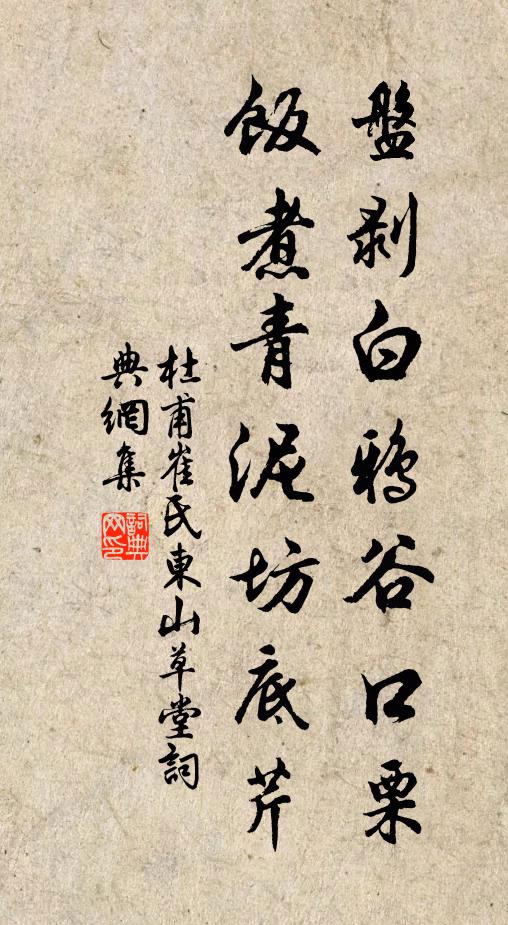 盤剥白鴉谷口栗
飯煮青泥坊底芹
杜甫崔氏東山草堂詞
典網集
詞典
网印